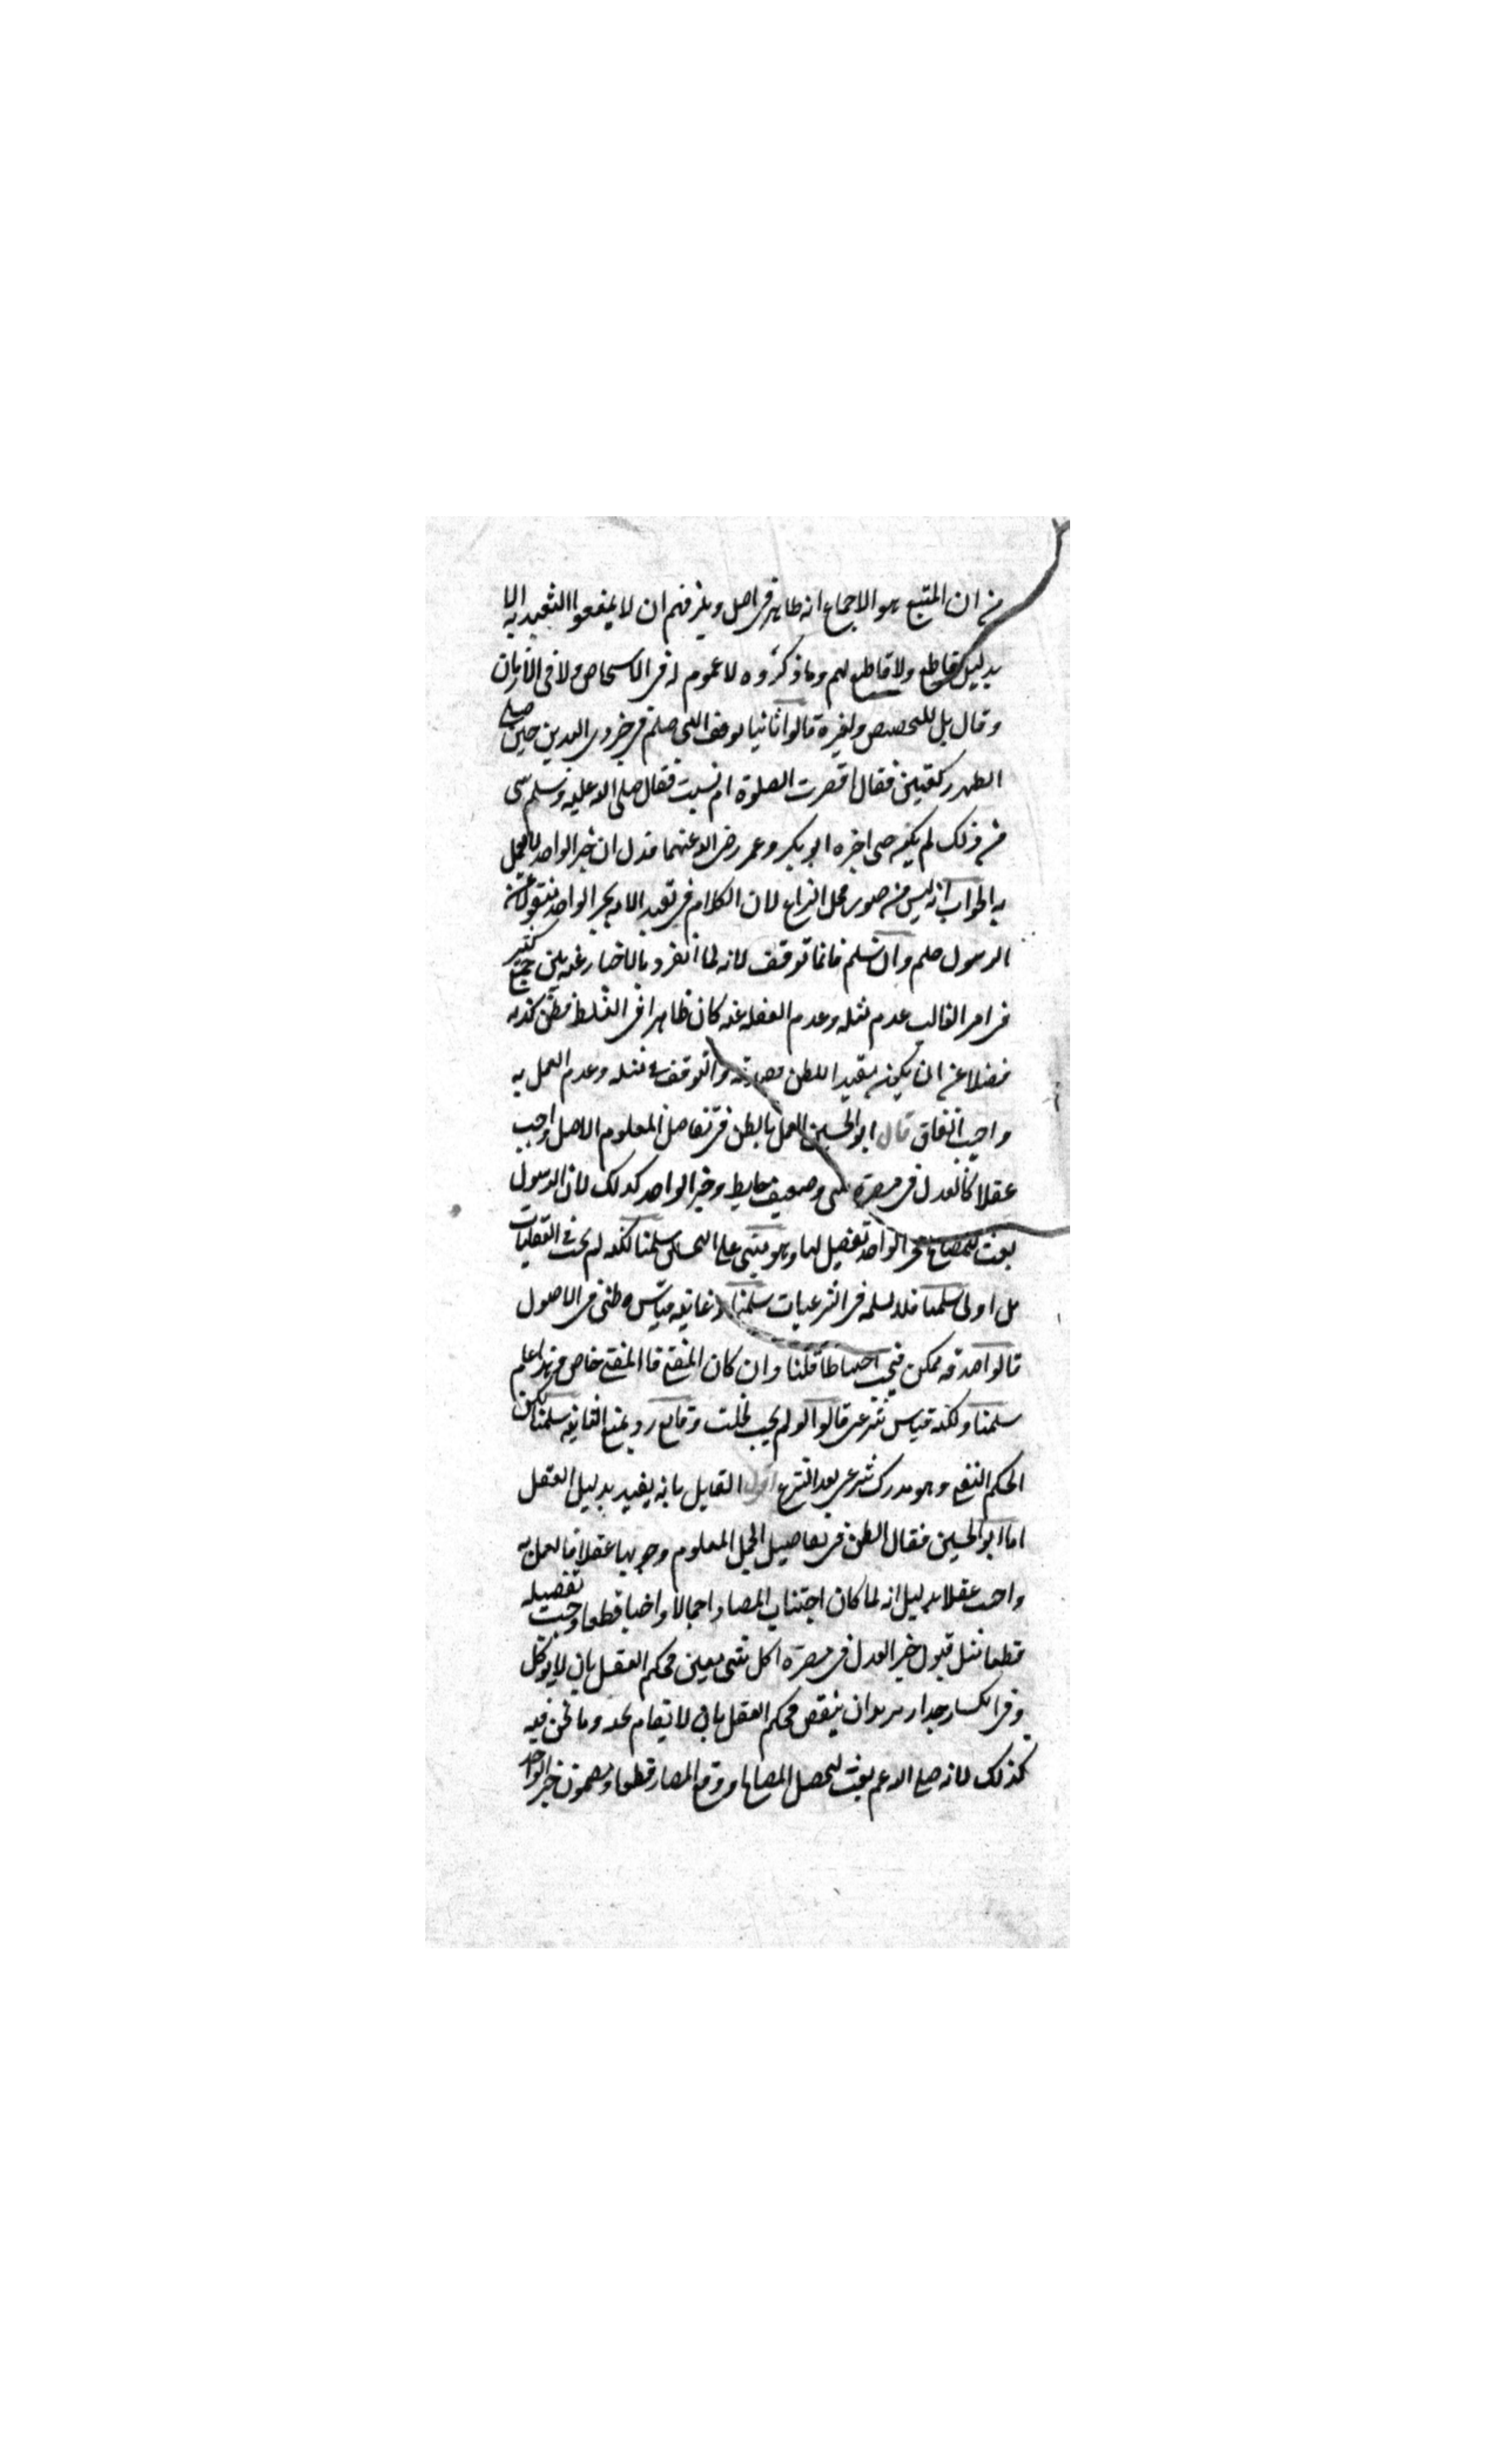 من ان المتبع هو الاجماع انه ظاهر فى اصل ويلزمهم ان لا يمنعوا التعبد به الا
بدليل قاطع ولا قاطع لهم وما ذكروه لا عموم له فى الاشخاص ولا فى الازمان
وقابل للتخصيص ولغيره قالوا ثانيا توقف النبى صلعم فى خبر ذى اليدين حين صلى
الظهر ركعتين فقال اقصرت الصلوة ام نسيت فقال صلى الله عليه وسلم
من ذلك لم يكن حتى اخبره ابو بكر وعمر رضى الله عنهما فدل ان خبر الواحد لا يعمل
به الجواب انه ليس من صور محل النزاع لان الكلام فى تعبد الامة بخبر الواحد منقولا عن
الرسول صلعم وان سلم فانما توقف لانه لما انفرد بالاخبار عنه بين جمع كثير
فى امر الغالب عدم مثله وعدم الغفلة عنه كان ظاهرا فى الغلط فظن كذبه
فضلا عن ان يكون مفيدا للظن صدقه والتوقف فى مثله وعدم العمل به
واجب اتفاق قال ابو الحسين العمل بالظن فى تفاصيل المعلوم الاصل واجب
عقلا كالعدل فى مضرة شى وضعيف حايط وخبر الواحد كذلك لان الرسول
بعث للمصالح فخبر الواحد تفصيل لها وهو مبنى على التحسين سلمنا لكنه لم يجب فى العقليات
بل اولى سلمنا فلا نسلمه فى الشرعيات سلمنا وغايته قياس وظنى فى الاصول
قالوا صدقه ممكن فيجب احتياطا قلنا وان كان المفتى فالمفتى خاص وهذا عام
سلمنا ولكنه قياس شرعى قالوا لو لم يجب لخلت وقايع ورد بمنع الثانية سلمنا لكن
الحكم النفى وهو مدرك شرعى بعد الشرع اقول القايل بانه يفيد بدليل العقل
اما ابو الحسين فقال الظن فى تفاصيل الجمل المعلوم وجوبها عقلا فالعمل به
واجب عقلا بدليل انه لما كان اجتناب المضار اجمالا واجبا قطعا وجبت تفصيله
قطعا مثل قبول خبر العدل فى مضرة اكل شى معين فحكم العقل بان لا يوكل
وفى انكسار جدار يريد ان ينقض فحكم العقل بان لا يقام تحته وما نحن فيه
كذلك لانه صلى الله عم بعث لتحصيل المصالح ودفع المضار قطعا ومضمون خبر الواحد